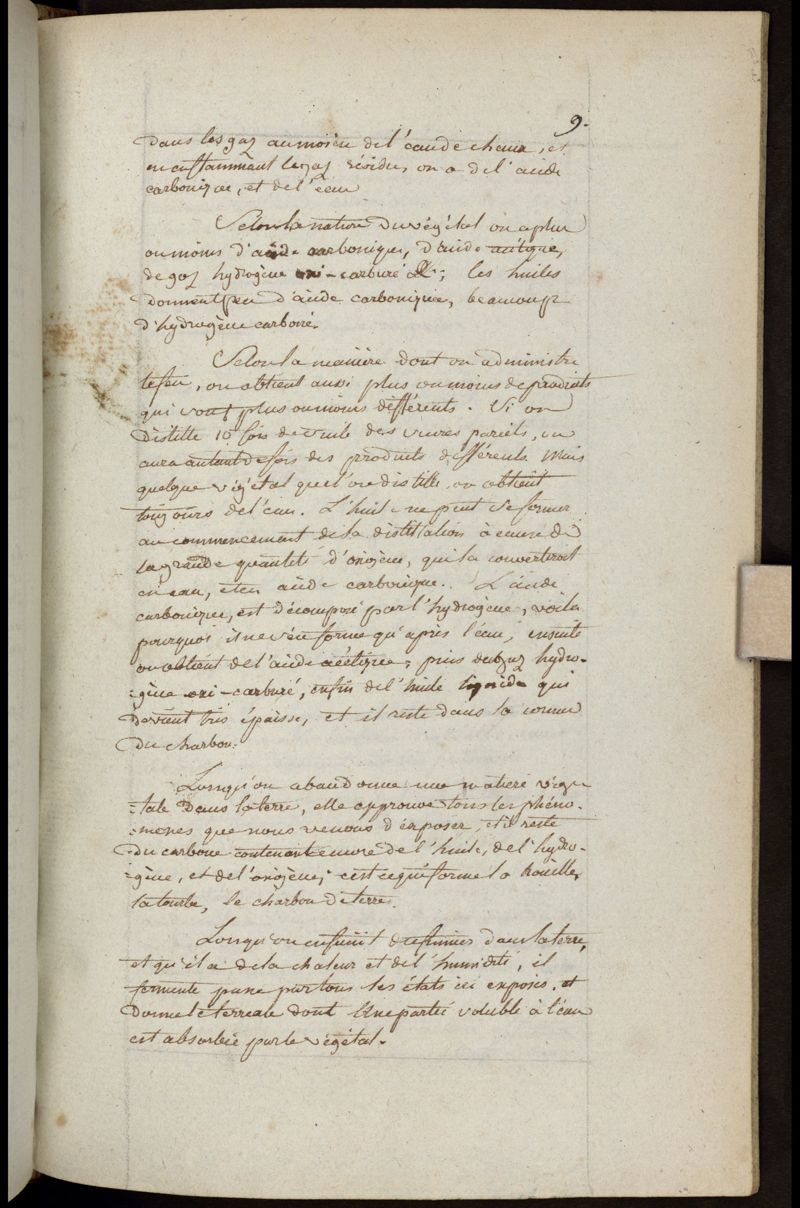 9.
dans les gaz au moïen de l'eau de chaux, et
en enflammant le gaz résidu, on a de l'acide
carbonique, et de l'eau
Selon la nature du végétal on a plus
ou moins d'acide carbonique, d'acide acétique,
de gaz hydrogène oxi-carburé &c; les huiles
donnent peu d'acide carbonique, beaucoup
d'hydrogène carboné.
Selon la manière dont on administre
le feu, on obtient aussi plus ou moins de produits
qui sont plus ou moins différents. Si on
distille 10 fois de suite des sucres pareils, on
aura autant de fois des produits différents mais
quelque végétal que l'on distille on obtient
toujours de l'eau. L'huile ne peut se former
au commencement de la distillation à cause de
la grande quantité d'oxigène, qui la convertiroit
en eau, et en acide carbonique. L'acide
carbonique, est décomposé par l'hydrogène, voila
pourquoi il ne s'en forme qu'après l'eau, ensuite
on obtient de l'acide acétique, puis du gaz hydro-
-gène oxi-carburé, enfin de l'huile liquide qui
devient très épaisse, et il reste dans la cornue
du charbon.
Lorsqu'on abandonne une matière végé-
-tale dans la terre, elle epprouve tous les phéno-
-mènes que nous venons d'exposer, et il reste
du carbone contenant encore de l'huile, de l'hydro-
-gène, et de l'oxigène; c'est ce qui forme la houille,
la tourbe, le charbon de terre.
Lorsqu'on enfouit du fumier dans la terre,
et qu'il a de la chaleur et de l'humidité, il
fermente passe par tous les états ici exposés, et
donne le terreau dont une partie soluble à l'eau
est absorbée par le végétal.